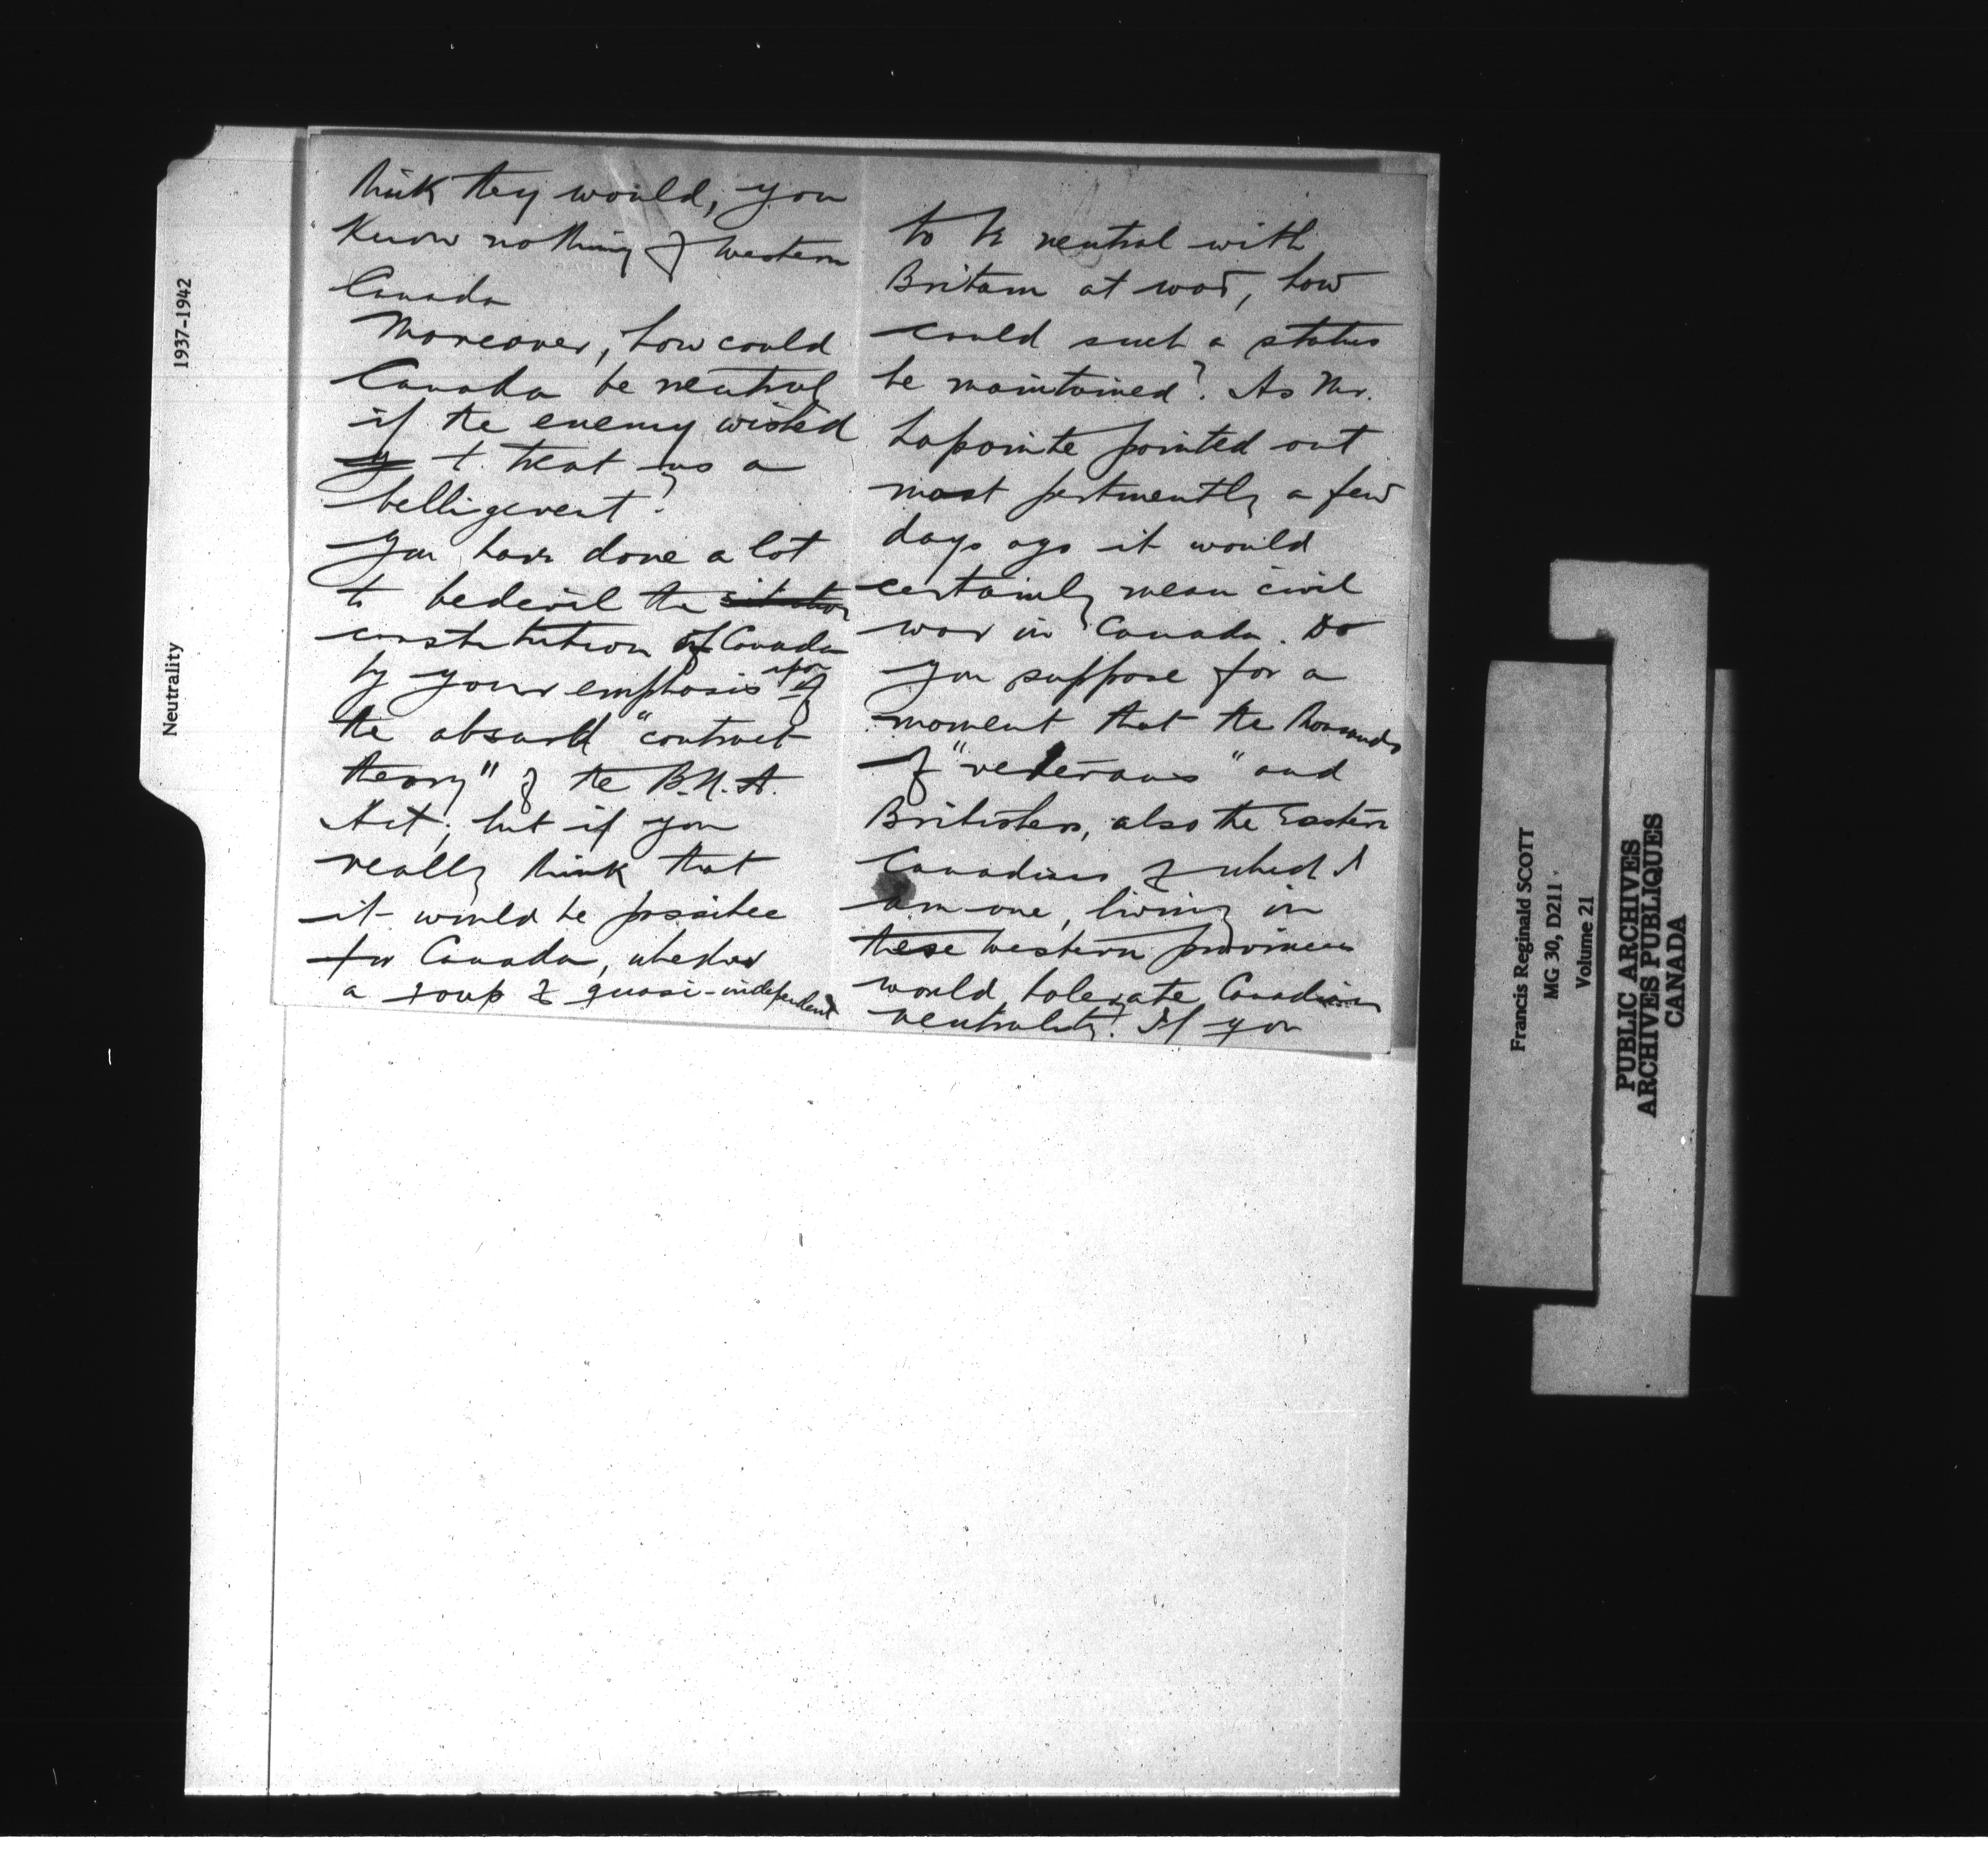 think they would, you
know nothing of western
Canada
Moreover, how could
Canada be neutral
if the enemy wished
to treat us a
belligerent?
You have done a lot
to bedevil the situation
constitution of Canada
by your emphasis upon of
the absurd "contract
theory" of the B.N.A.
Act; but if you
really think that
it would be possible
for Canada, whether
a group of quasi-independent
to be neutral with
Britain at war, how
could such a status
be maintained? As Mr.
Lapointe pointed out
most pertinently a few
days ago it would
certainly mean civil
war in Canada. Do
you suppose for a
moment that the thousands
of "veterans" and
Britishers, also the Eastern
Canadians of which I
am one, living in
these western provinces
would tolerate Canadian
neutrality? If you
Neutrality 1937-1942
Francis Reginald SCOTT
MG 30, D211
Volume 21
PUBLIC ARCHIVES
ARCHIVES PUBLIQUES
CANADA